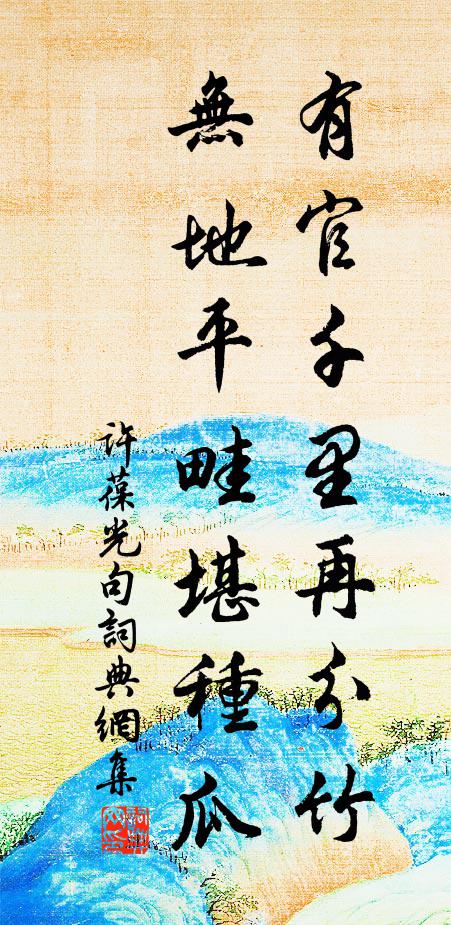 有官千里再分竹
無地平畦堪種瓜
許葆光句詞典網集